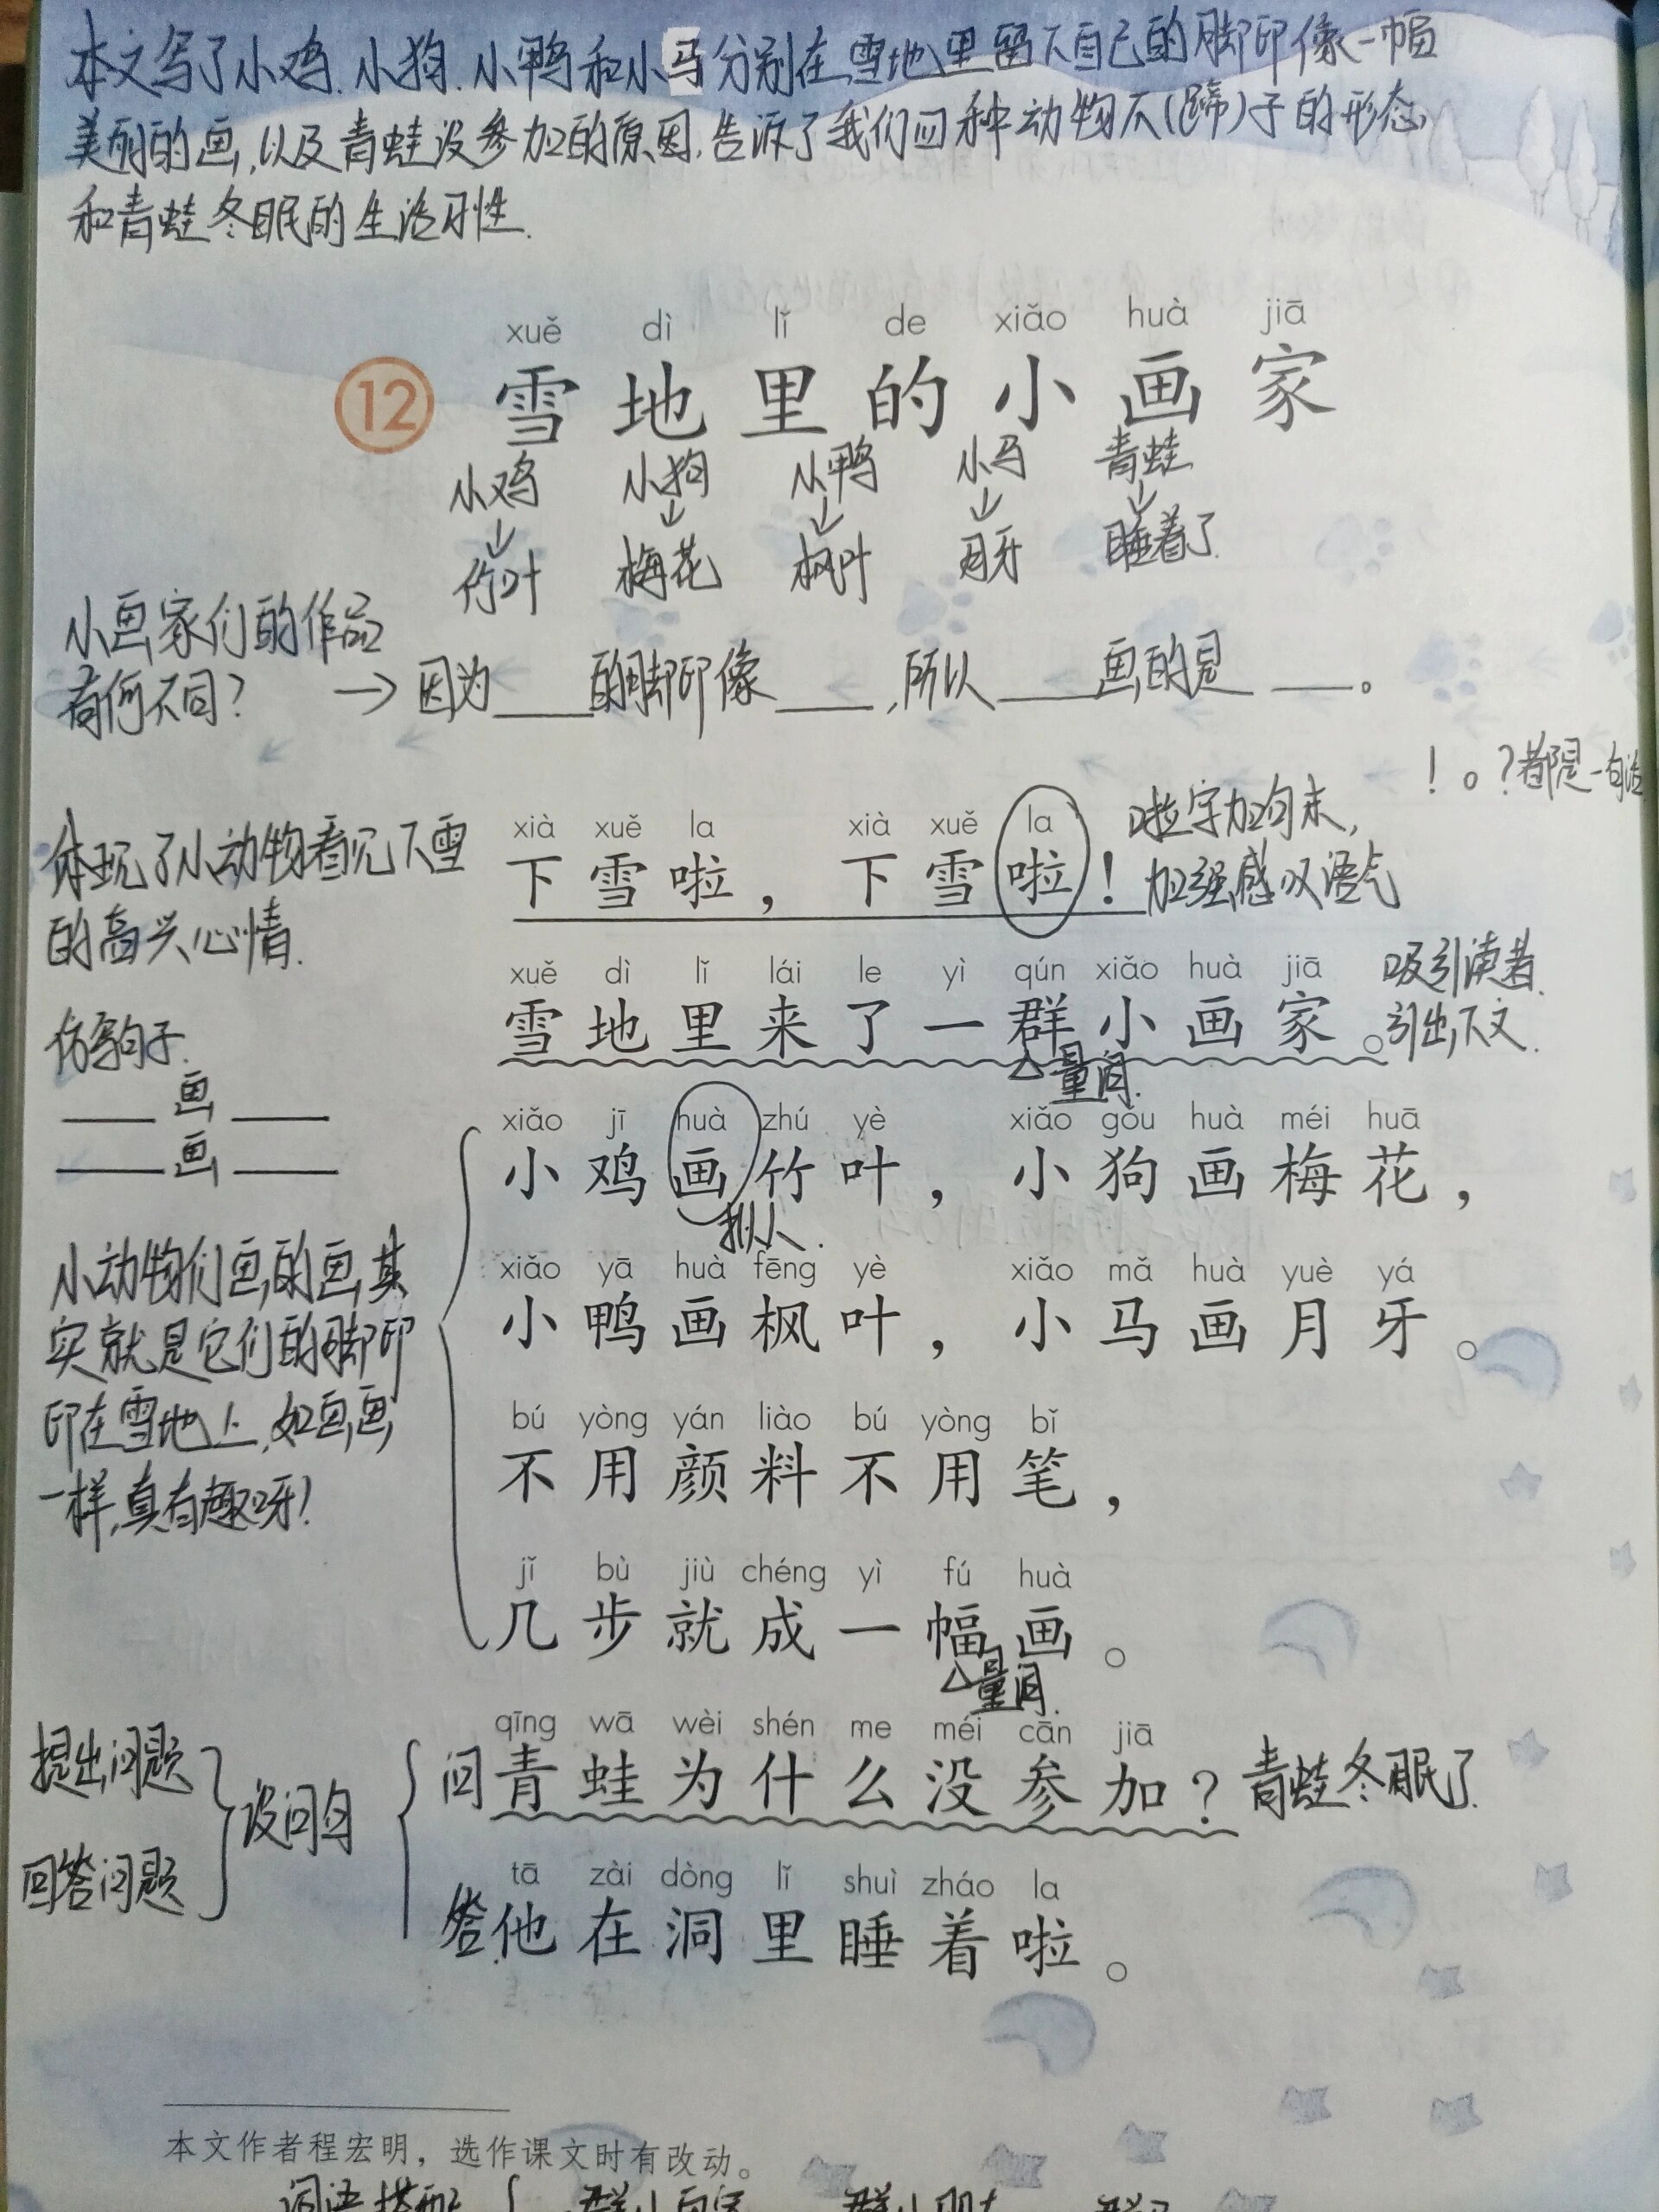 本文写了小鸡.小狗.小鸭和小马分别在雪地里留下自己的脚印像一幅
美丽的画,以及青蛙没参加的原因.告诉了我们四种动物爪(蹄)子的形态
和青蛙冬眠的生活习性.
xuě dì lǐ de xiǎo huà jiā
12 雪地里的小画家
小鸡 小狗 小鸭 小马 青蛙
↓ ↓ ↓ ↓ ↓
竹叶 梅花 枫叶 月牙 睡着了.
小画家们的作品
有何不同? → 因为____的脚印像____,所以____画的是____。
! 。?都是一句话
体现了小动物看见下雪
的高兴心情.
xià xuě la xià xuě la
下雪啦，下雪啦！
啦字加句末,
加强感叹语气
xuě dì lǐ lái le yì qún xiǎo huà jiā
雪地里来了一群小画家。
吸引读者.
引出下文.
量词.
仿写句子.
____画____
____画____
xiǎo jī huà zhú yè xiǎo gǒu huà méi huā
小鸡画竹叶，小狗画梅花，
拟人.
xiǎo yā huà fēng yè xiǎo mǎ huà yuè yá
小鸭画枫叶，小马画月牙。
小动物们画的画,其
实就是它们的脚印
印在雪地上,如画画
一样,真有趣呀!
bú yòng yán liào bú yòng bǐ
不用颜料不用笔，
jǐ bù jiù chéng yì fú huà
几步就成一幅画。
量词.
提出问题
回答问题
设问句
qīng wā wèi shén me méi cān jiā
问青蛙为什么没参加？青蛙冬眠了.
tā zài dòng lǐ shuì zháo la
答他在洞里睡着啦。
本文作者程宏明，选作课文时有改动。
词语搭配